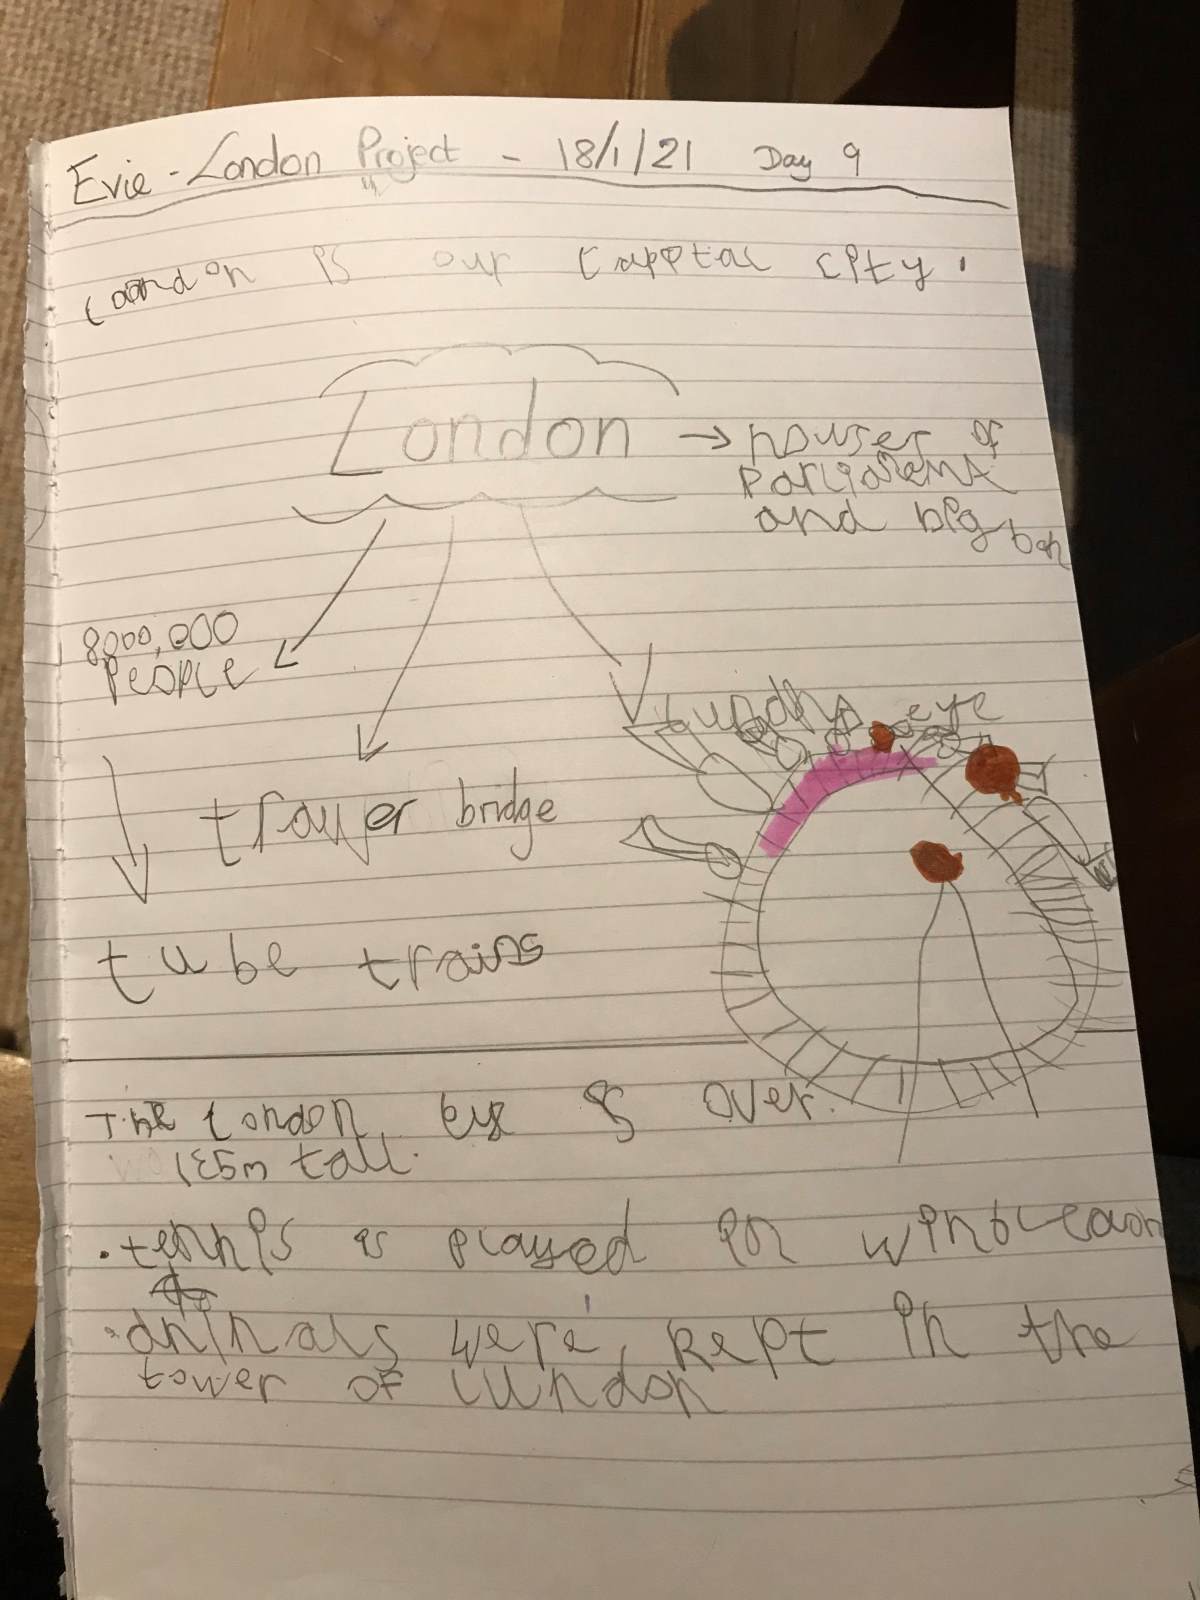 Evie - London Project - 18/1/21 Day 9
London is our cappital city.
London
→ houses of
parliament
and big ben
8000,000
People
lundns eye
trayer bridge
tube trains
The London eye is over.
135m tall.
. tennis is played in
. animals were, kept in the
tower of lundon